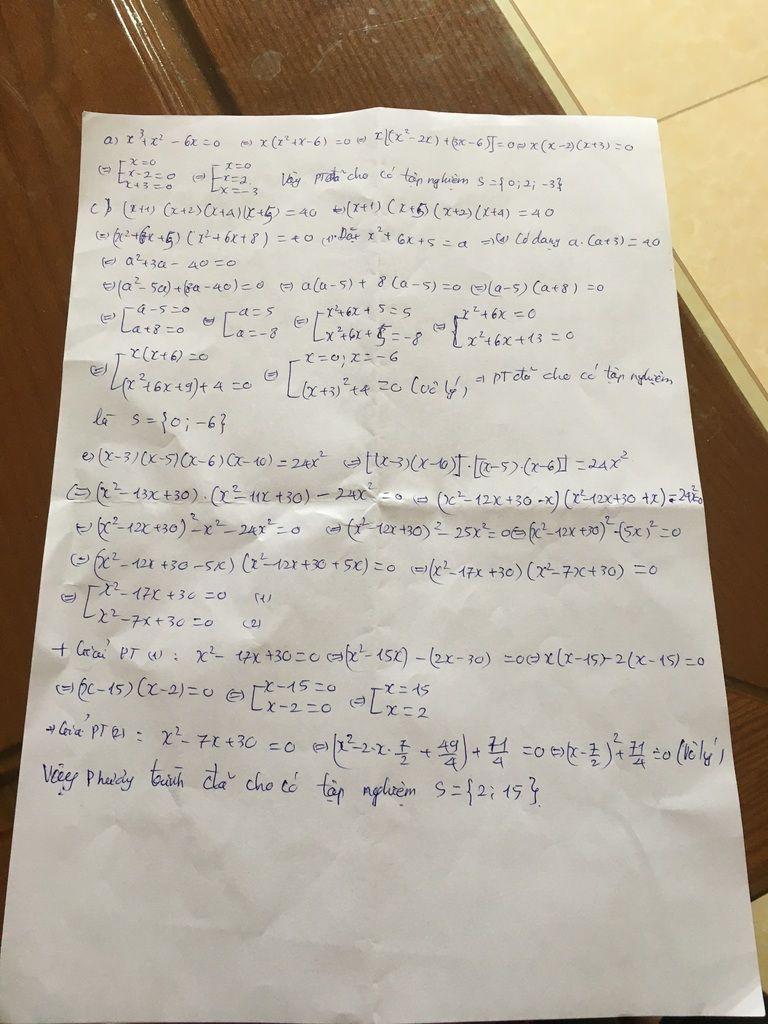 a) x³+x² - 6x = 0 ⇔ x(x²+x-6) = 0 ⇔ x[(x²-2x)+(3x-6)] = 0 ⇔ x(x-2)(x+3) = 0
⇔ [x=0 x-2=0 x+3=0 ⇔ [x=0 x=2 x=-3 Vậy PT đã cho có tập nghiệm S={0;2;-3}
c) (x+1)(x+2)(x+4)(x+5) = 40 ⇔ (x+1)(x+5)(x+2)(x+4) = 40
⇔ (x²+6x+5)(x²+6x+8) = 40 (1) Đặt x²+6x+5 = a ⇒ (1) Có dạng a.(a+3) = 40
⇔ a²+3a - 40 = 0
⇔ (a²-5a)+(8a-40)=0 ⇔ a(a-5) + 8(a-5) = 0 ⇔ (a-5)(a+8) = 0
⇔ [a-5=0 a+8=0 ⇔ [a=5 a=-8 ⇔ [x²+6x+5=5 x²+6x+5=-8 ⇔ [x²+6x=0 x²+6x+13=0
⇔ [x(x+6)=0 (x²+6x+9)+4=0 ⇔ [x=0; x=-6 (x+3)²+4=0 (vô lý) ⇒ PT đã cho có tập nghiệm
là S={0;-6}
e) (x-3)(x-5)(x-6)(x-10) = 24x² ⇔ [(x-3)(x-10)].[(x-5).(x-6)] = 24x²
⇔ (x²-13x+30).(x²-11x+30) - 24x² = 0 ⇔ (x²-12x+30-x)(x²-12x+30+x) - 24x²=0
⇔ (x²-12x+30)²-x²-24x² = 0 ⇔ (x²-12x+30)² - 25x² = 0 ⇔ (x²-12x+30)²-(5x)² = 0
⇔ (x²-12x+30-5x)(x²-12x+30+5x) = 0 ⇔ (x²-17x+30)(x²-7x+30) = 0
⇔ [x²-17x+30=0 (1) x²-7x+30=0 (2)
+ Giải PT (1): x²-17x+30=0 ⇔ (x²-15x)-(2x-30) = 0 ⇔ x(x-15)-2(x-15)=0
⇔ (x-15)(x-2)=0 ⇔ [x-15=0 x-2=0 ⇔ [x=15 x=2
+ Giải PT (2): x²-7x+30 = 0 ⇔ (x²-2.x.7/2+49/4)+71/4 = 0 ⇔ (x-7/2)²+71/4=0 (Vô lý)
Vậy phương trình đã cho có tập nghiệm S={2;15}